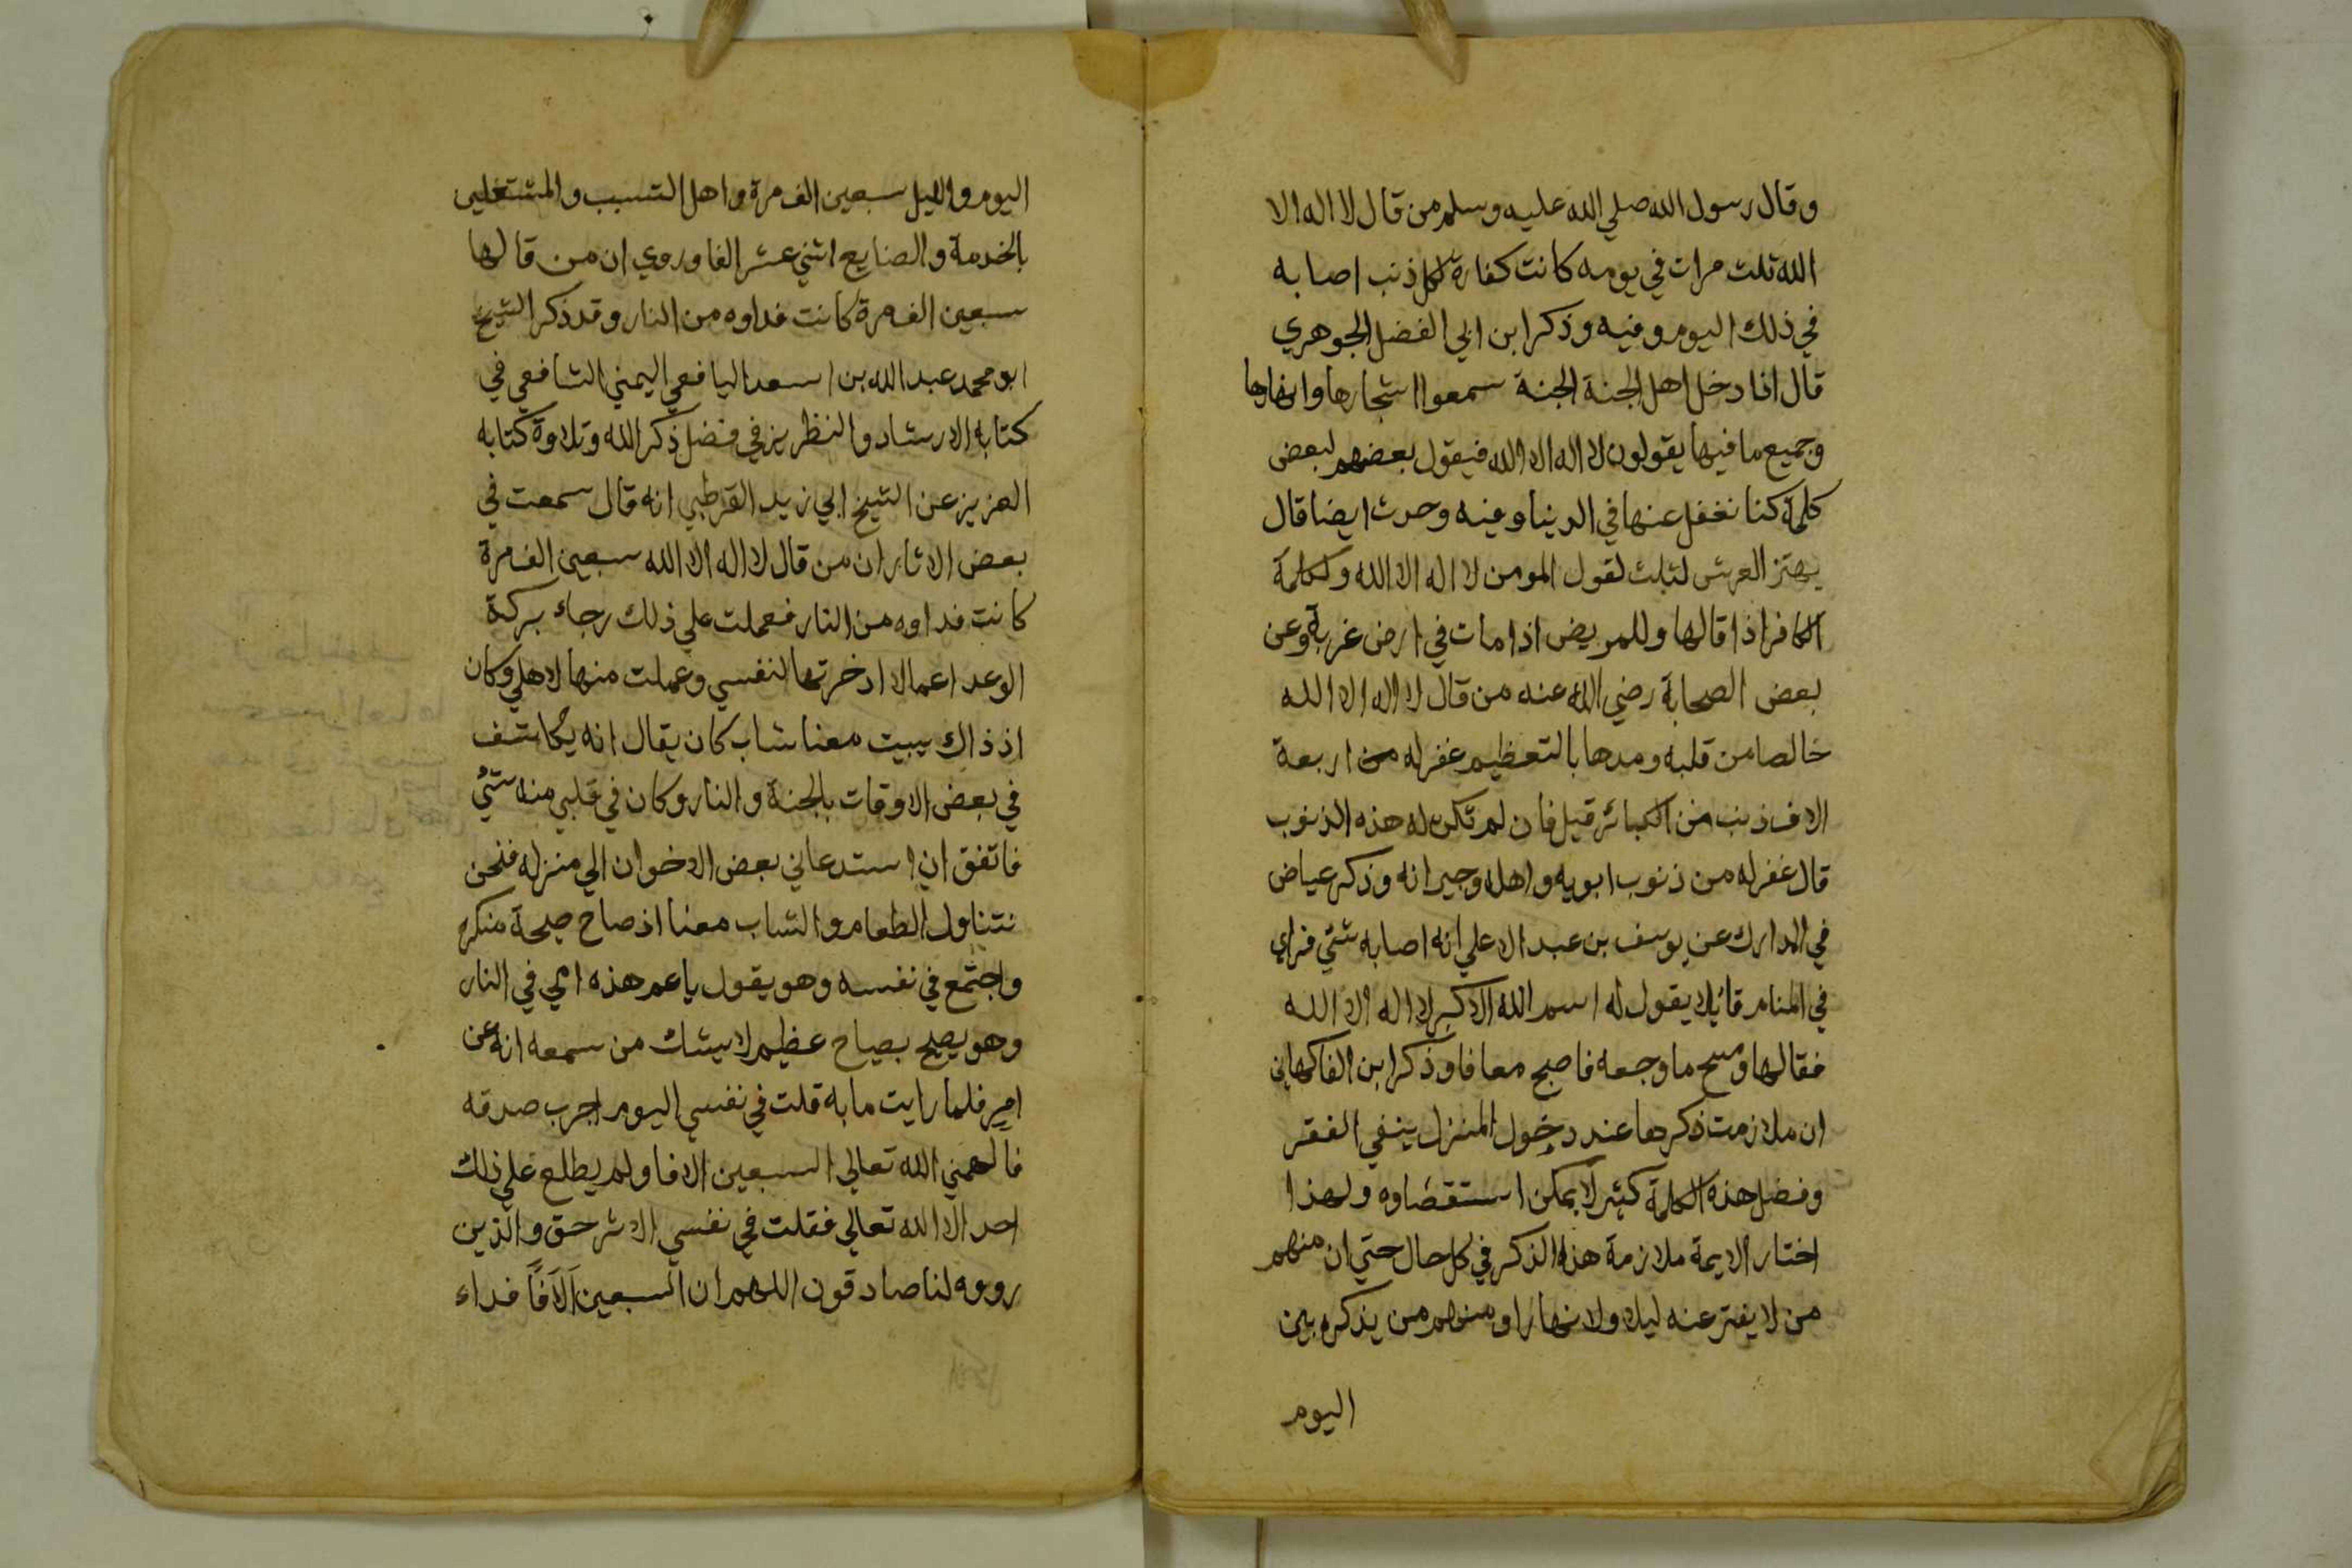 وقال رسول الله صلي الله عليه وسلم من قال لا اله الا
الله ثلث مرات في يومه كانت كفارة لكل ذنب اصابه
في ذلك اليوم وفيه وذكر ابن ابي الفضل الجوهري
قال اذا دخل اهل الجنة الجنة سمعوا اشجارها وانهارها
وجميع ما فيها يقولون لا اله الا الله فيقول بعضهم لبعض
كلمة كنا نغفل عنها في الدنيا وفيه وحدث ايضا قال
يهتز العرش لثلث لقول المومن لا اله الا الله ولكلمة
الكافر اذا قالها وللمريض اذا مات في ارض غربة وعن
بعض الصحابة رضي الله عنه من قال لا اله الا الله
خالصا من قلبه ومدها بالتعظيم غفر له من اربعة
الاف ذنب من الكبائر قيل فان لم تكن له هذه الذنوب
قال غفر له من ذنوب ابويه واهله وجيرانه وذكر عياض
في المدارك عن يوسف بن عبد الاعلي انه اصابه شئي فراي
في المنام قايلا يقول له اسم الله الاكبر لا اله الا الله
فقالها ومسح ما وجعه فاصبح معافا وذكر ابن الفاكهاني
ان ملازمت ذكرها عند دخول المنزل ينفي الفقر
وفضل هذه الكلمة كثير لا يمكن استقضاوه ولهذا
اختار الايمة ملازمة هذا الذكر في كل حال حتي ان منهم
من لا يفتر عنه ليلا ولا نهارا ومنهم من يذكره بين
اليوم
اليوم والليل سبعين الف مرة واهل التسبب والمشتغلين
بالخدمة والصنايع اثني عشر الفا وروي ان من قالها
سبعين الف مرة كانت فداوه من النار وقد ذكر الشيخ
ابو محمد عبد الله بن اسعد اليافعي اليمني الشافعي في
كتابه الارشاد والنظريز في فضل ذكر الله وتلاوة كتابه
العزيز عن الشيخ ابي زيد القرطبي انه قال سمعت في
بعض الاثار ان من قال لا اله الا الله سبعين الف مرة
كانت فداوه من النار فعملت علي ذلك رجاء بركة
الوعد اعمالا ادخرتها لنفسي وعملت منها لاهلي وكان
اذ ذاك يبيت معنا شاب كان يقال انه يكاشف
في بعض الاوقات بالجنة والنار وكان في قلبي منه شئي
فاتفق ان استدعاني بعض الاخوان الي منزله فنحن
نتناول الطعام والشاب معنا اذ صاح صيحة منكرة
واجتمع في نفسه وهو يقول يا عم هذه امي في النار
وهو يصيح بصياح عظيم لا يشك من سمعه انه عن
امر فلما رايت ما به قلت في نفسي اليوم اجرب صدقه
فالهمني الله تعالي السبعين الافا ولم يطلع علي ذلك
احد الا الله تعالي فقلت في نفسي الاثر حق والذين
رووه لنا صادقون اللهم ان السبعين آلافًا فداء